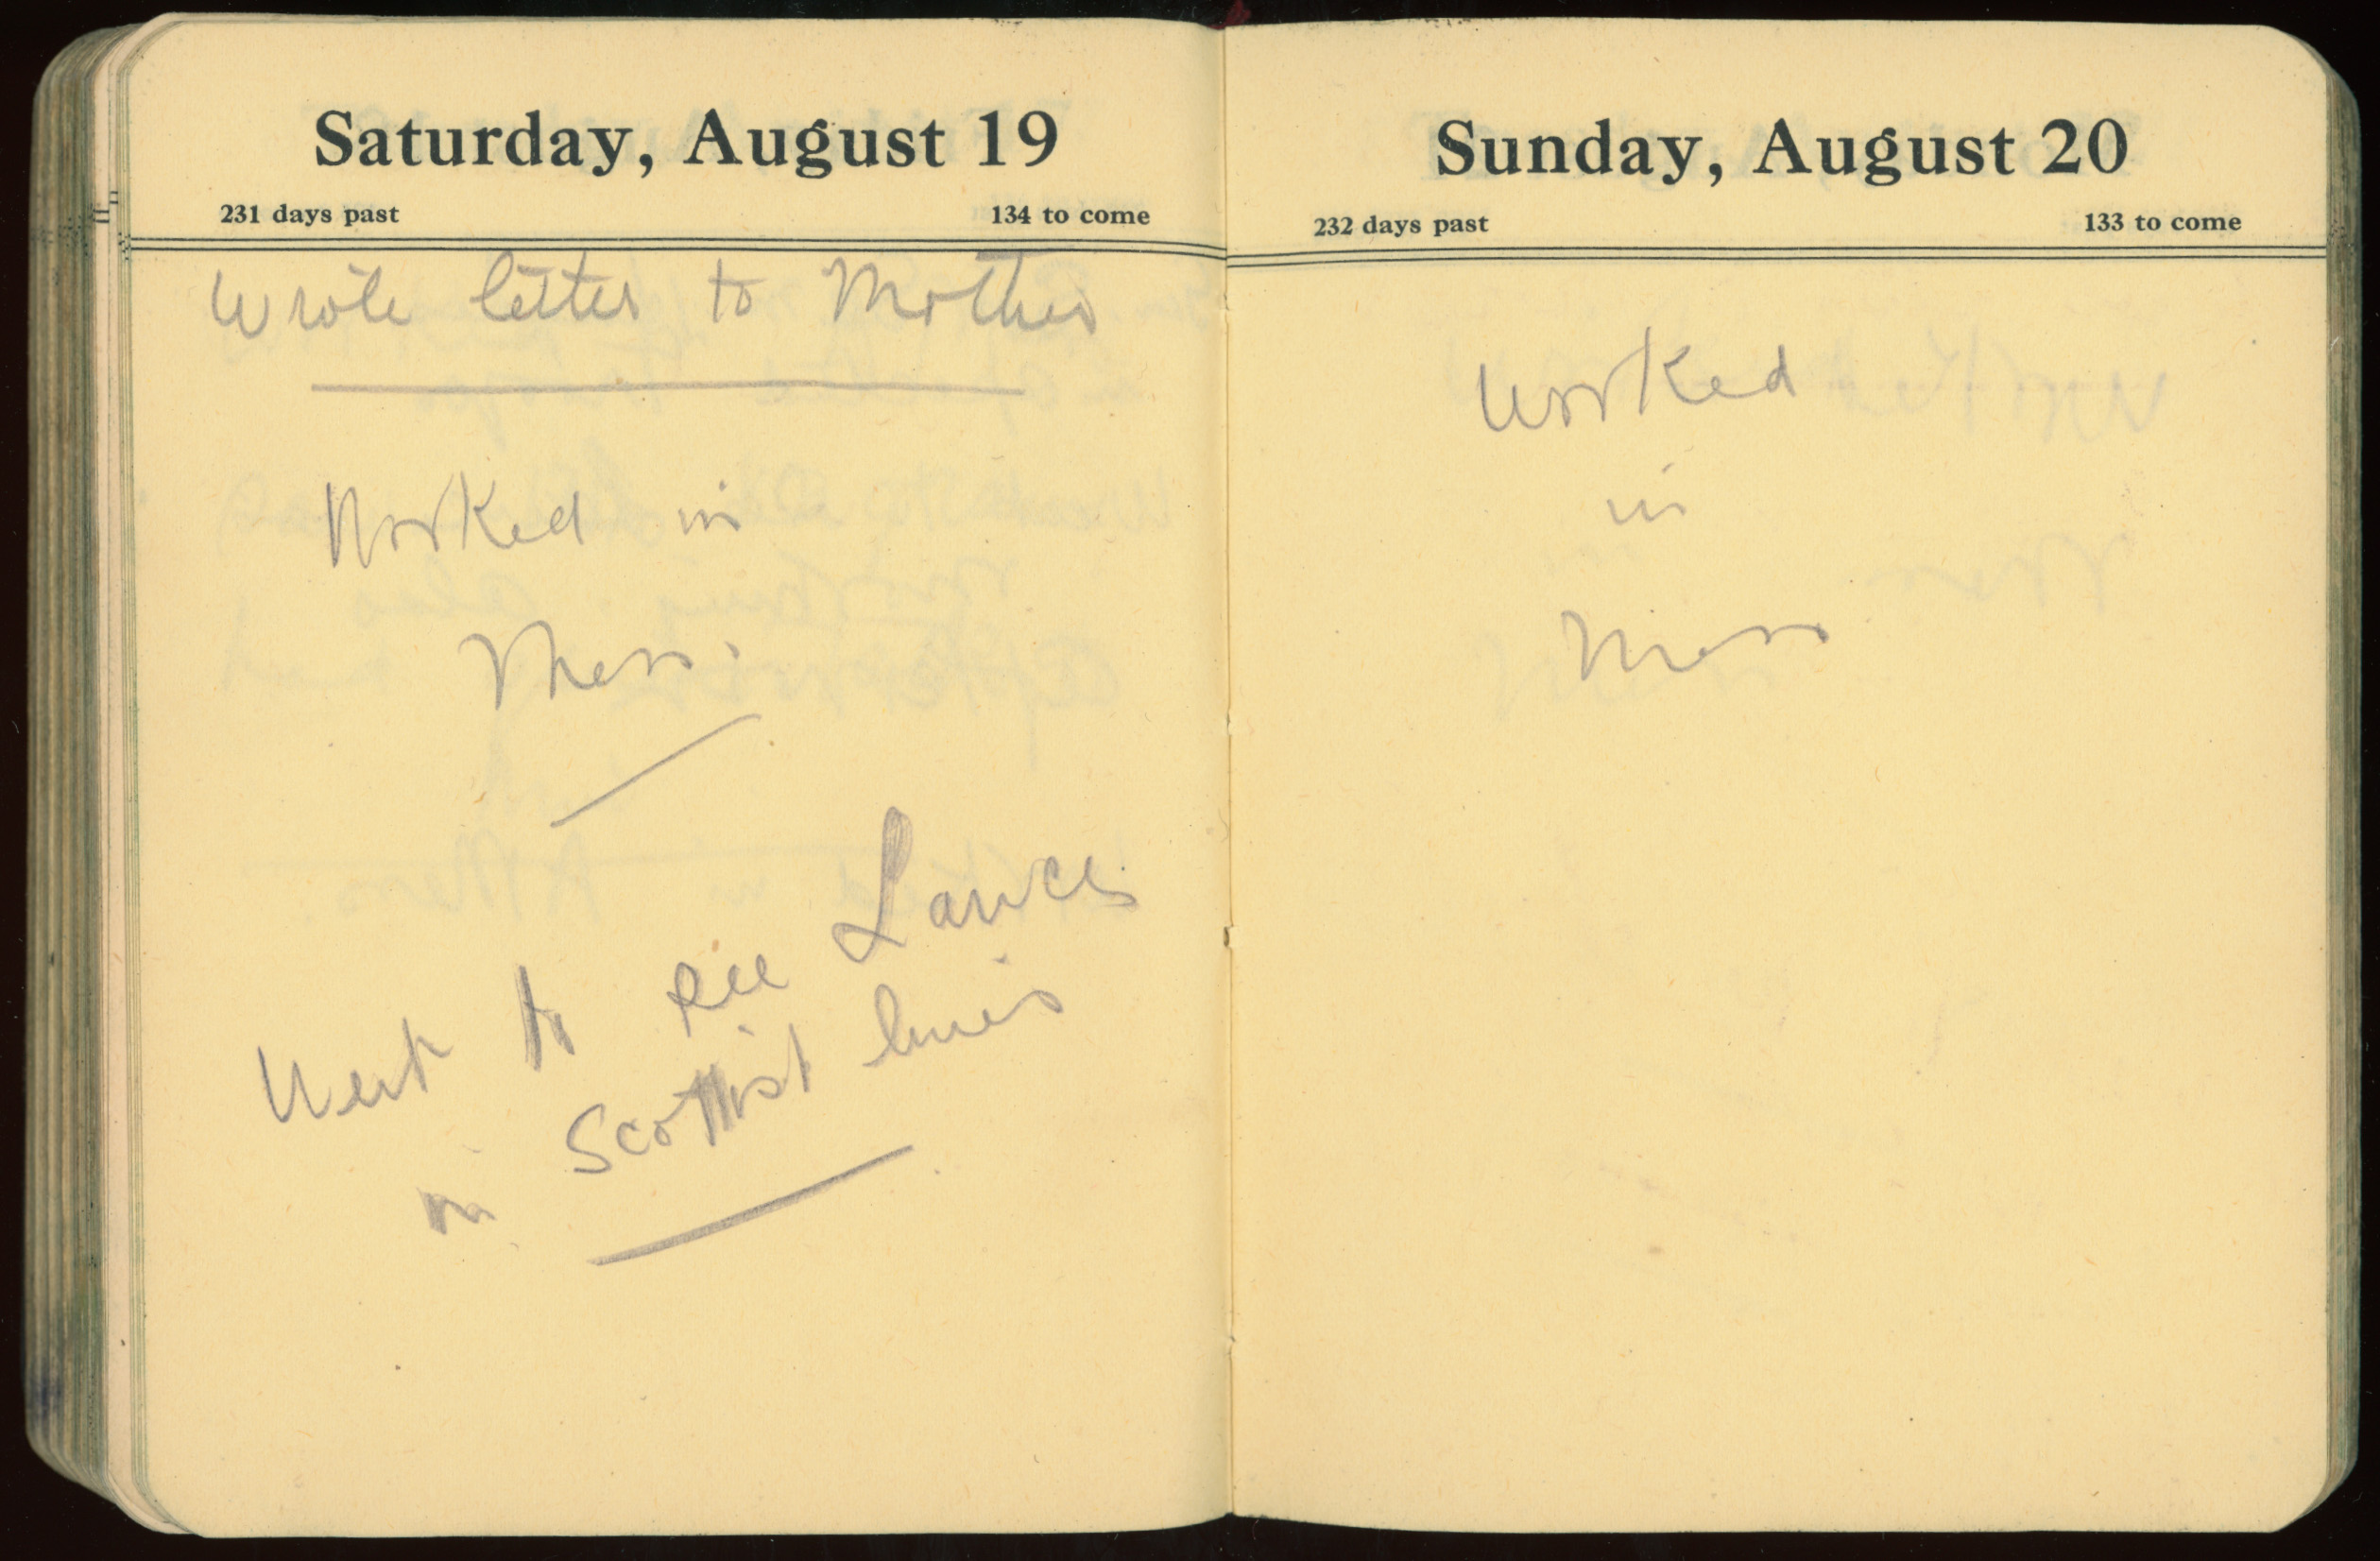 Saturday, August 19
231 days past 134 to come
Wrote letter to Mother
Worked in
Mess.
Went to see Lance
in Scottish lines
Sunday, August 20
232 days past 133 to come
Worked
in
Mess